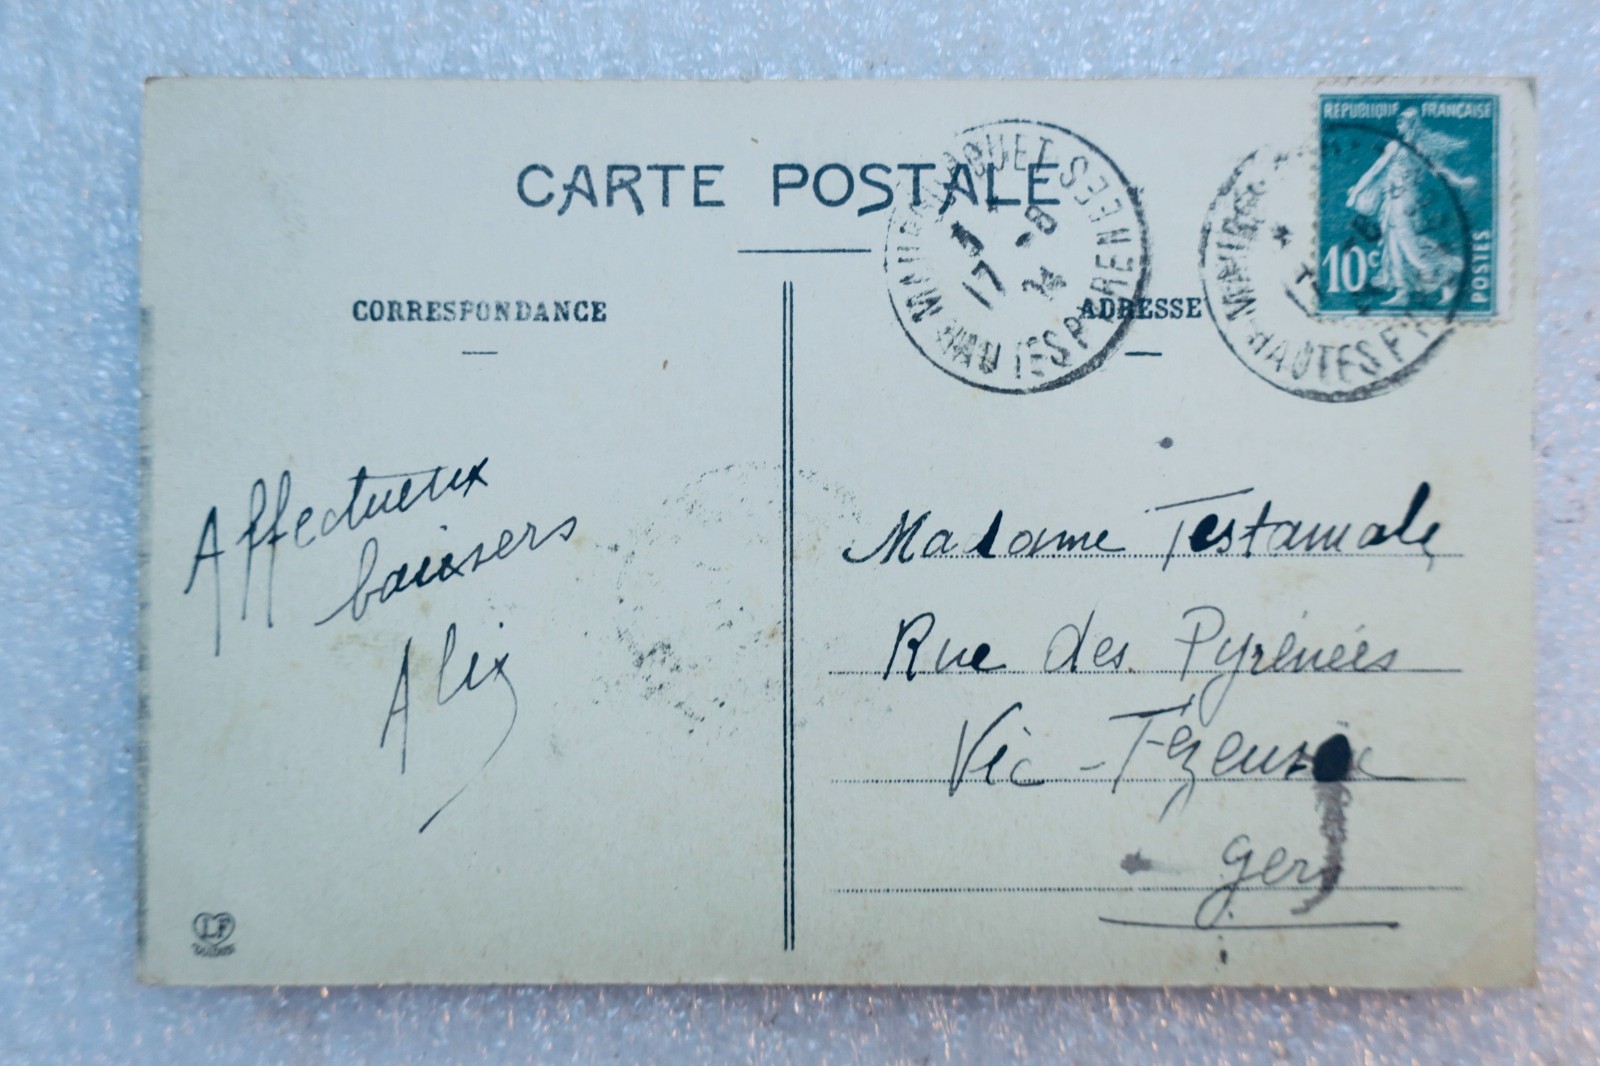 CARTE POSTALE
CORRESPONDANCE
ADRESSE
REPUBLIQUE FRANÇAISE
10c
POSTES
17 -8
24
HAUTES PYRENEES
HAUTES
Affectueux
baisers
Alix
Madame Testamale
Rue des Pyrénées
Vic-Fezensac
Gers
LF